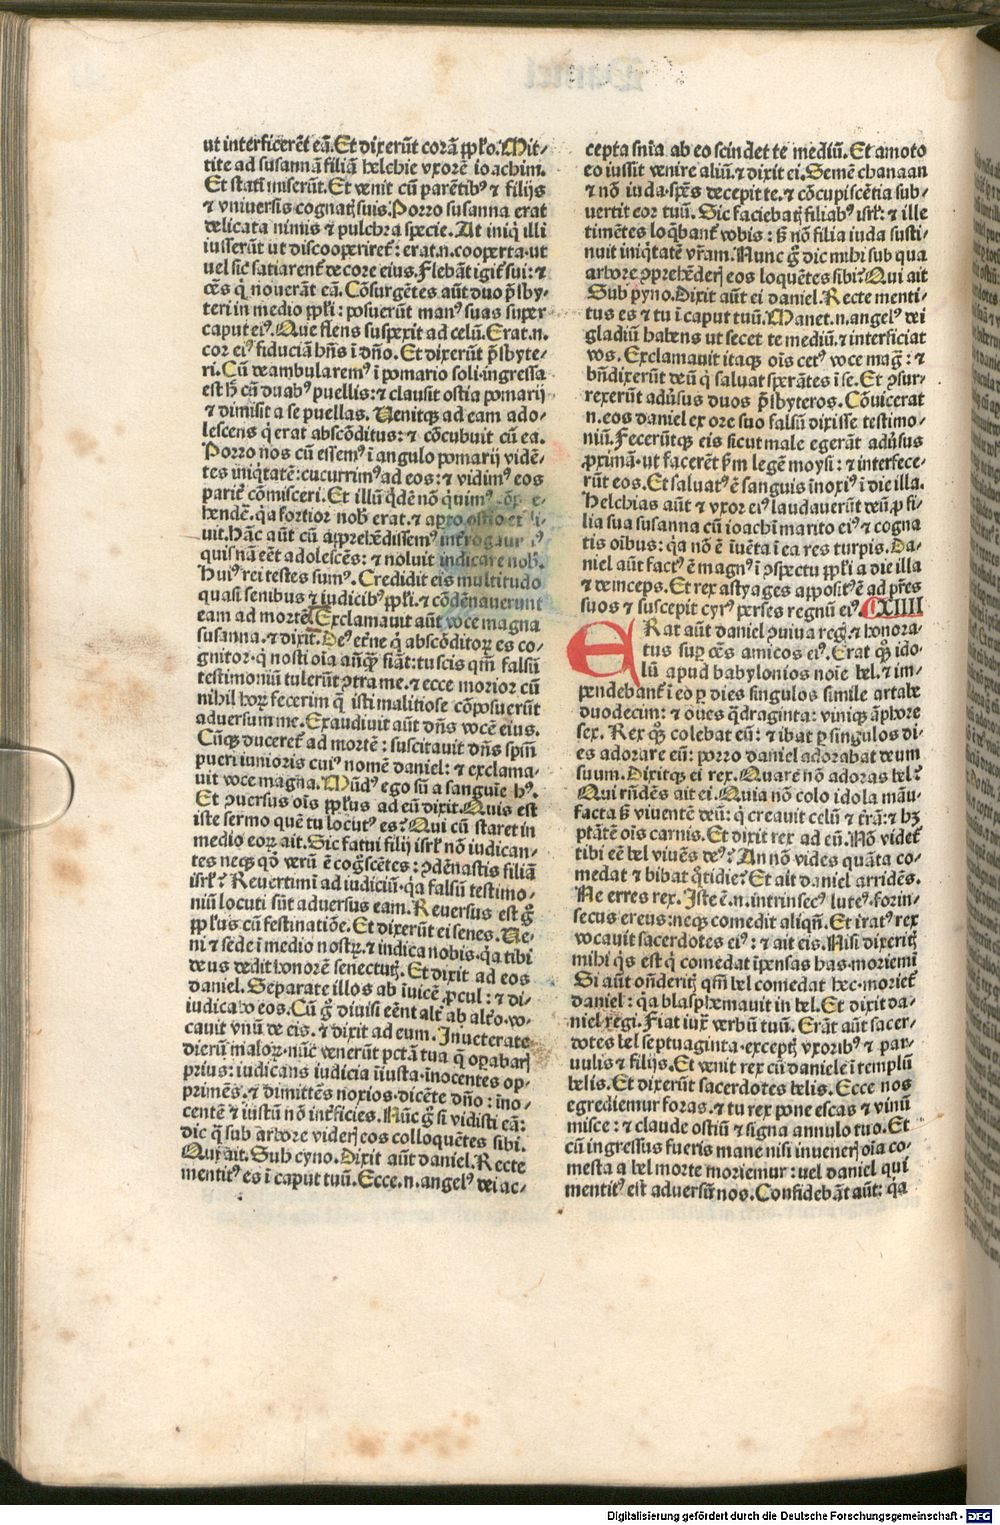 ut interficerēt eā. Et dixerūt corā ppl̄o. Mit-
tite ad susannā filiā helchie vxorē ioachim.
Et statī miserūt. Et venit cū parētibꝰ ⁊ filijs
⁊ vniuersis cognatꝭ suis. Porro susanna erat
delicata nimis ⁊ pulchra specie. At iniqͥ illi
iusserūt ut discooperiret᷑: erat.n. cooperta. ut
uel sic satiarent᷑ decore eius. Flebāt igit᷑ sui: ⁊
cēs qͥ nouerāt eā. Cōsurgētes aūt duo p̄sby-
teri in medio ppl̄i: posuerūt manꝰ suas super
caput eiꝰ. Que flens suspexit ad celū. Erat.n.
cor eiꝰ fiduciā hn̄s ī dn̄o. Et dixerūt p̄sbyte-
ri. Cū deambularemꝰ ī pomario soli. ingressa
est h̄ cū duabꝰ puellis: ⁊ clausit ostia pomarij
⁊ dimisit a se puellas. Uenitqꝫ ad eam ado-
lescens qͥ erat abscōditus: ⁊ cōcubuit cū ea.
Porro nos cū essemꝰ ī angulo pomarij vidē-
tes iniqͥtatē: cucurrimꝰ ad eos: ⁊ vidimꝰ eos
parit᷑ cōmisceri. Et illū qͥdē nō qͥuimꝰ
hendē. qͥa fortior nob̄ erat. ⁊ apto ostio
uit. Hāc aūt cū apprehēdissemꝰ
quisnā eēt adolescēs: ⁊ noluit indicare nob̄.
Huiꝰ rei testes sumꝰ. Credidit eis multitudo
quasi senibus ⁊ iudicibꝰ ppl̄i. ⁊ cōdēnauerunt
eam ad mortē. Exclamauit aūt voce magna
susanna. ⁊ dixit. Deꝰ et̄ne qͥ abscōditoꝝ es co-
gnitor. qͥ nosti oīa anteqꝫ fiāt: tu scis qm̄ falsū
testimoniū tulerūt ꝯtra me. ⁊ ecce morior cū
nihil hoꝝ fecerim q̄ isti malitiose cōposuerūt
aduersum me. Exaudiuit aūt dn̄s vocē eius.
Cūqꝫ duceret᷑ ad mortē: suscitauit dn̄s spm̄
pueri iunioris cuiꝰ nomē daniel: ⁊ exclama-
uit voce magna. Mūdꝰ ego sū a sanguīe hꝰ.
Et ꝯuersus oīs ppl̄us ad eū dixit. Quis est
iste sermo quē tu locutꝰ es? Qui cū staret in
medio eoꝝ ait. Sic fatui filij isrl̄ nō iudican-
tes neqꝫ qͦ verū ē cog̊scētes: ꝯdēnastis filiā
isrl̄? Reuertimī ad iudiciū. qͥa falsū testimo-
niū locuti sūt aduersus eam. Reuersus est g̊
ppl̄us cū festinatiōe. Et dixerūt ei senes. Ue-
ni ⁊ sede ī medio nostꝝ. ⁊ indica nobis. qͥa tibi
deus dedit honorē senectutꝭ. Et dixit ad eos
daniel. Separate illos ab īuicē procul: ⁊ di-
iudicabo eos. Cū g̊ diuisi eēnt alt᷑ ab alt᷑o. vo-
cauit vnū de eis. ⁊ dixit ad eum. Inueterate
dierū maloꝝ. nūc venerūt pctā tua q̄ oꝑabarꝭ
prius: iudicans iudicia īiusta. inocentes op-
primēs. ⁊ dimittēs noxios. dicēte dn̄o: ino-
centē ⁊ iustū nō int᷑ficies. Nūc g̊ si vidisti eā:
dic qͣ sub arbore viderꝭ eos colloquētes sibi.
Qui ait. Sub cyno. Dixit aūt daniel. Recte
mentitꝰ es ī caput tuū. Ecce.n. angelꝰ dei ac-
cepta sn̄ia ab eo scindet te mediū. Et amoto
eo iussit venire aliū. ⁊ dixit ei. Semē chanaan
⁊ nō iuda. spēs decepit te. ⁊ cōcupiscētia sub-
uertit cor tuū. Sic faciebatꝭ filiabꝰ isrl̄: ⁊ ille
timētes loqͣbant᷑ vobis: sꝫ nō filia iuda susti-
nuit iniqͥtatē vr̄am. Nunc g̊ dic mihi sub qua
arbore ꝯprehēderꝭ eos loquētes sibi? Qui ait
Sub pyno. Dixit aūt ei daniel. Recte menti-
tus es ⁊ tu ī caput tuū. Manet.n. angelꝰ dei
gladiū habens ut secet te mediū. ⁊ interficiat
vos. Exclamauit itaqꝫ oīs cetꝰ voce mag̊: ⁊
bn̄dixerūt deū qͥ saluat sperātes ī se. Et ꝯsur-
rexerūt aduͥsus duos p̄sbyteros. Cōuicerat
n. eos daniel ex ore suo falsū dixisse testimo-
niū. Feceruntqꝫ eis sicut male egerāt aduͥsus
ꝓximā. ut facerēt ẜm legē moysi: ⁊ interfece-
rūt eos. Et saluatꝰ ē sanguis inoxiꝰ ī die illa.
Helchias aūt ⁊ vxor eiꝰ laudauerūt deū ꝓ fi-
lia sua susanna cū ioachī marito eiꝰ ⁊ cogna
tis oībus: qͥa nō ē īuēta ī ea res turpis. Da-
niel aūt factꝰ ē magnꝰ ī ꝯspectu ppl̄i a die illa
⁊ deinceps. Et rex astyages appositꝰ ē ad pr̄es
suos ⁊ suscepit cyrꝰ perses regnū eiꝰ. CXIIII
ERat aūt daniel ꝯuiua regꝭ. ⁊ honora-
tus suꝑ cēs amicos eiꝰ. Erat qͦꝫ ido-
lū apud babylonios noīe bel. ⁊ im-
pendebant᷑ ī eo ꝑ dies singulos simile artabe
duodecim: ⁊ oues qͣdraginta: viniqꝫ āphore
sex. Rex qͦꝫ colebat eū: ⁊ ibat ꝑ singulos di-
es adorare eū: porro daniel adorabat deum
suum. Dixitqꝫ ei rex. Quare nō adoras bel?
Qui rn̄dēs ait ei. Quia nō colo idola māu-
facta sꝫ viuentē deū: qͥ creauit celū ⁊ trā: ⁊ hꝫ
ptātē oīs carnis. Et dixit rex ad eū. Nō videt᷑
tibi eē bel viuēs deꝰ? An nō vides quāta co-
medat ⁊ bibat qͦtidie? Et ait daniel arridēs.
Ne erres rex. Iste ē.n. intrinsecꝰ luteꝰ. forin-
secus ereus: neqꝫ comedit aliqn̄. Et iratꝰ rex
vocauit sacerdotes eiꝰ: ⁊ ait eis. Nisi dixeritꝭ
mihi qͥs est qͥ comedat īpensas has. moriemī
Si aūt on̄deritꝭ qm̄ bel comedat hec. moriet᷑
daniel: qͥa blasphemauit in bel. Et dixit da-
niel regi. Fiat iux̄ verbū tuū. Erāt aūt sacer-
dotes bel septuaginta. exceptꝭ vxoribꝰ ⁊ par-
uulis ⁊ filijs. Et venit rex cū daniele ī templū
belis. Et dixerūt sacerdotes belis. Ecce nos
egrediemur foras. ⁊ tu rex pone escas ⁊ vinū
misce: ⁊ claude ostiū ⁊ signa annulo tuo. Et
cū ingressus fueris mane nisi inuenerꝭ oīa co-
mesta a bel morte moriemur: uel daniel qui
mentitꝰ est aduersū nos. Confidebāt aūt: qͥa
Digitalisierung gefördert durch die Deutsche Forschungsgemeinschaft - DFG